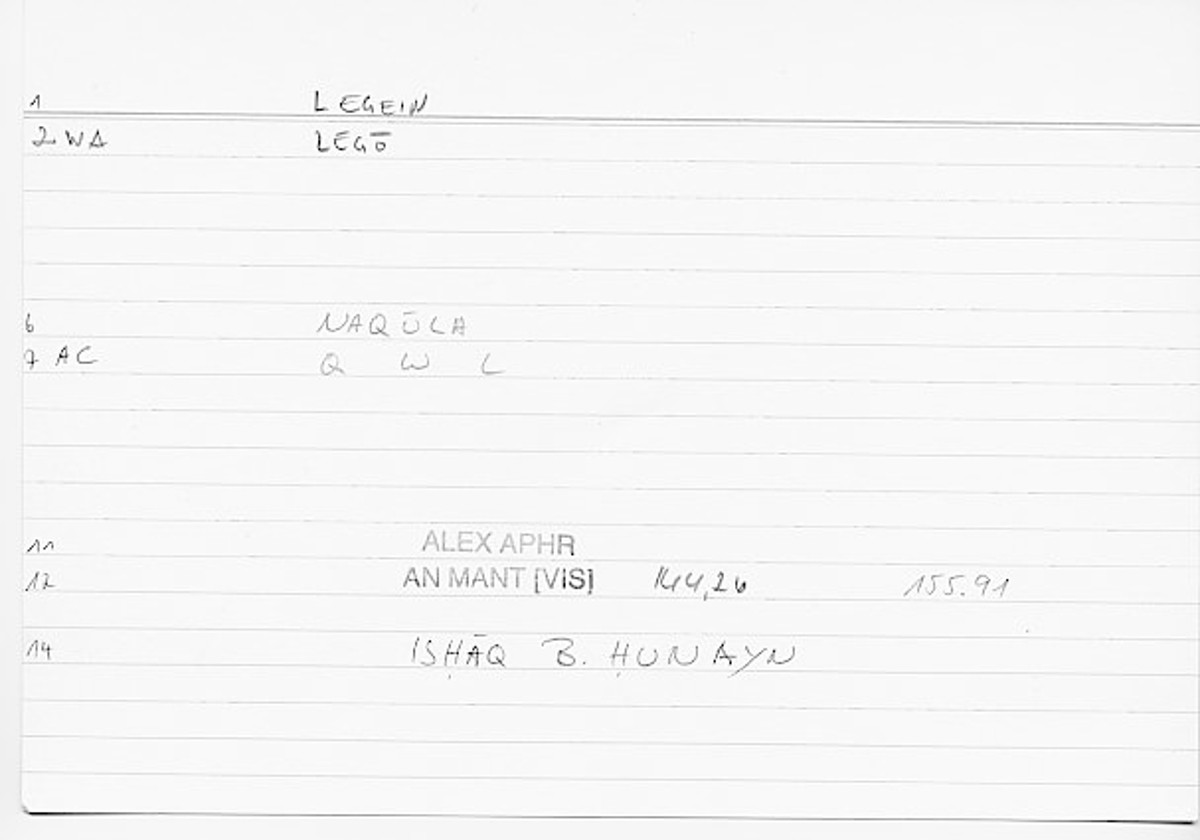 1 LEGEIN
2 WA LEGŌ
6 NAQŪLA
7 AC Q W L
11 ALEX APHR
12 AN MANT [VIS] 144,26 155.91
14 ISḤĀQ B. ḤUNAYN